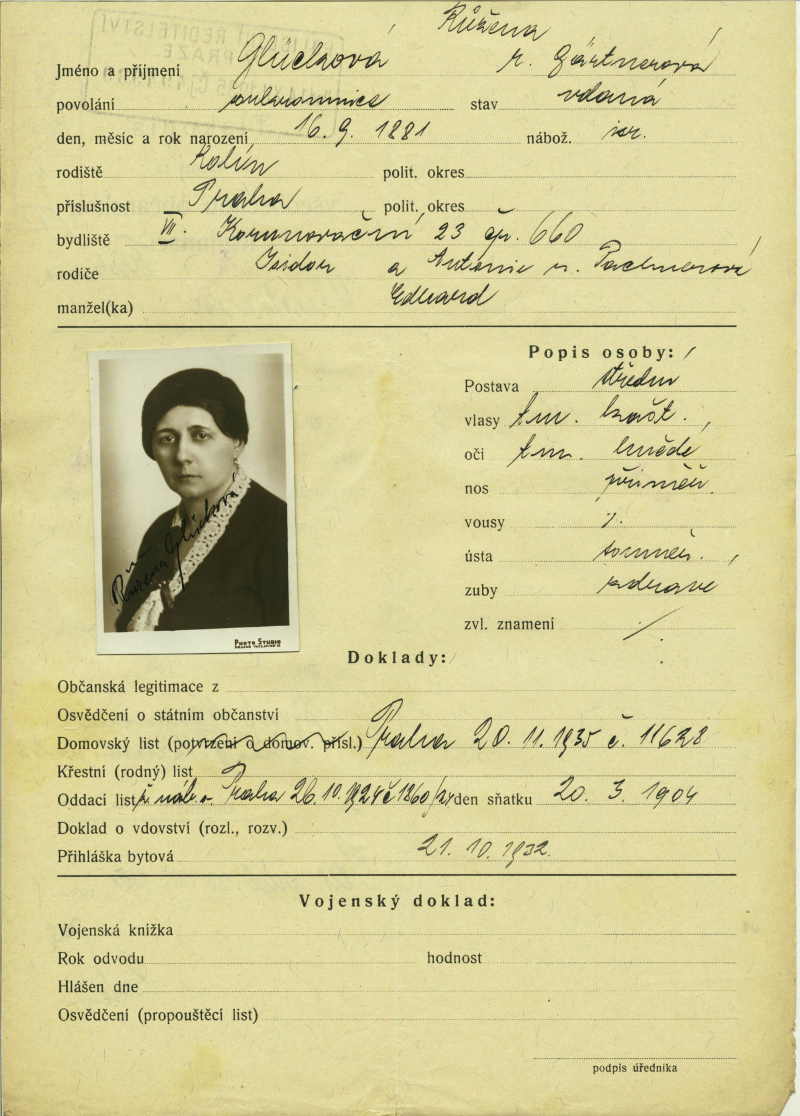 ŘEDITELSTVÍ
PRAZE
Jméno a přijmení Glücková Růžena r. Gärtnerová
povolání soukromnice stav vdaná
den, měsíc a rok narození 16. 9. 1881 nábož. isr.
rodiště Kolín polit. okres
příslušnost Praha polit. okres
bydliště VII. Korunovační 23 čp. 660
rodiče Isidor a Antonie r. Pachnerová
manžel(ka) Eduard
Popis osoby:
Postava střední
vlasy tm. kašt.
oči tm. hnědé
nos přiměř.
vousy
ústa souměř.
zuby zdravé
zvl. znamení
Růžena Glücková
PHOTO STUDIO
Doklady:
Občanská legitimace z
Osvědčení o státním občanství
Domovský list (potvrzení o domov. přísl.) Praha 20. 11. 1935 č. 11628
Křestní (rodný) list
Oddací list ž. náb. o. Praha 26. 10. 1924 č 1860/24 den sňatku 20. 3. 1904
Doklad o vdovství (rozl., rozv.)
Přihláška bytová 21. 10. 1932.
Vojenský doklad:
Vojenská knížka
Rok odvodu hodnost
Hlášen dne
Osvědčení (propouštěcí list)
podpis úředníka